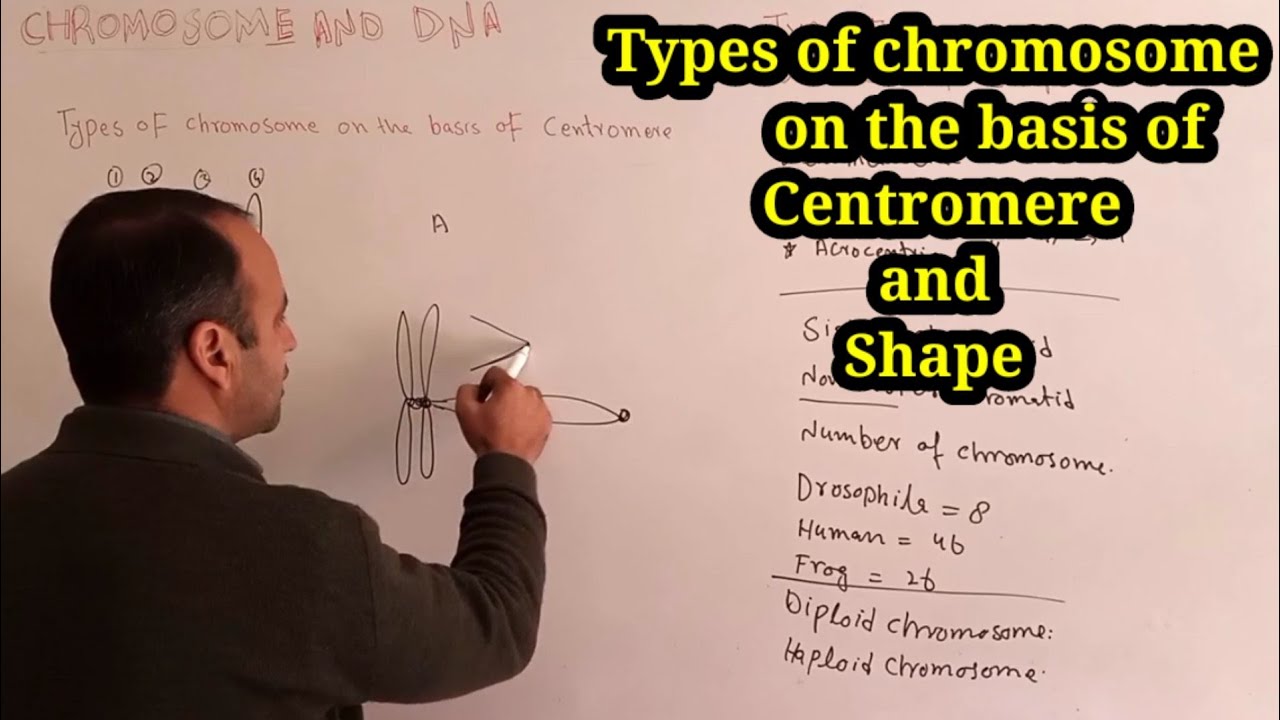 CHROMOSOME AND DNA
Types of chromosome
on the basis of
Centromere
and
Shape
Types of chromosome on the basis of Centromere
① ② ③ ④
A
* Acrocentric
Number of chromosome.
Drosophila = 8
Human = 46
Frog = 26
Diploid chromosome:
Haploid chromosome.